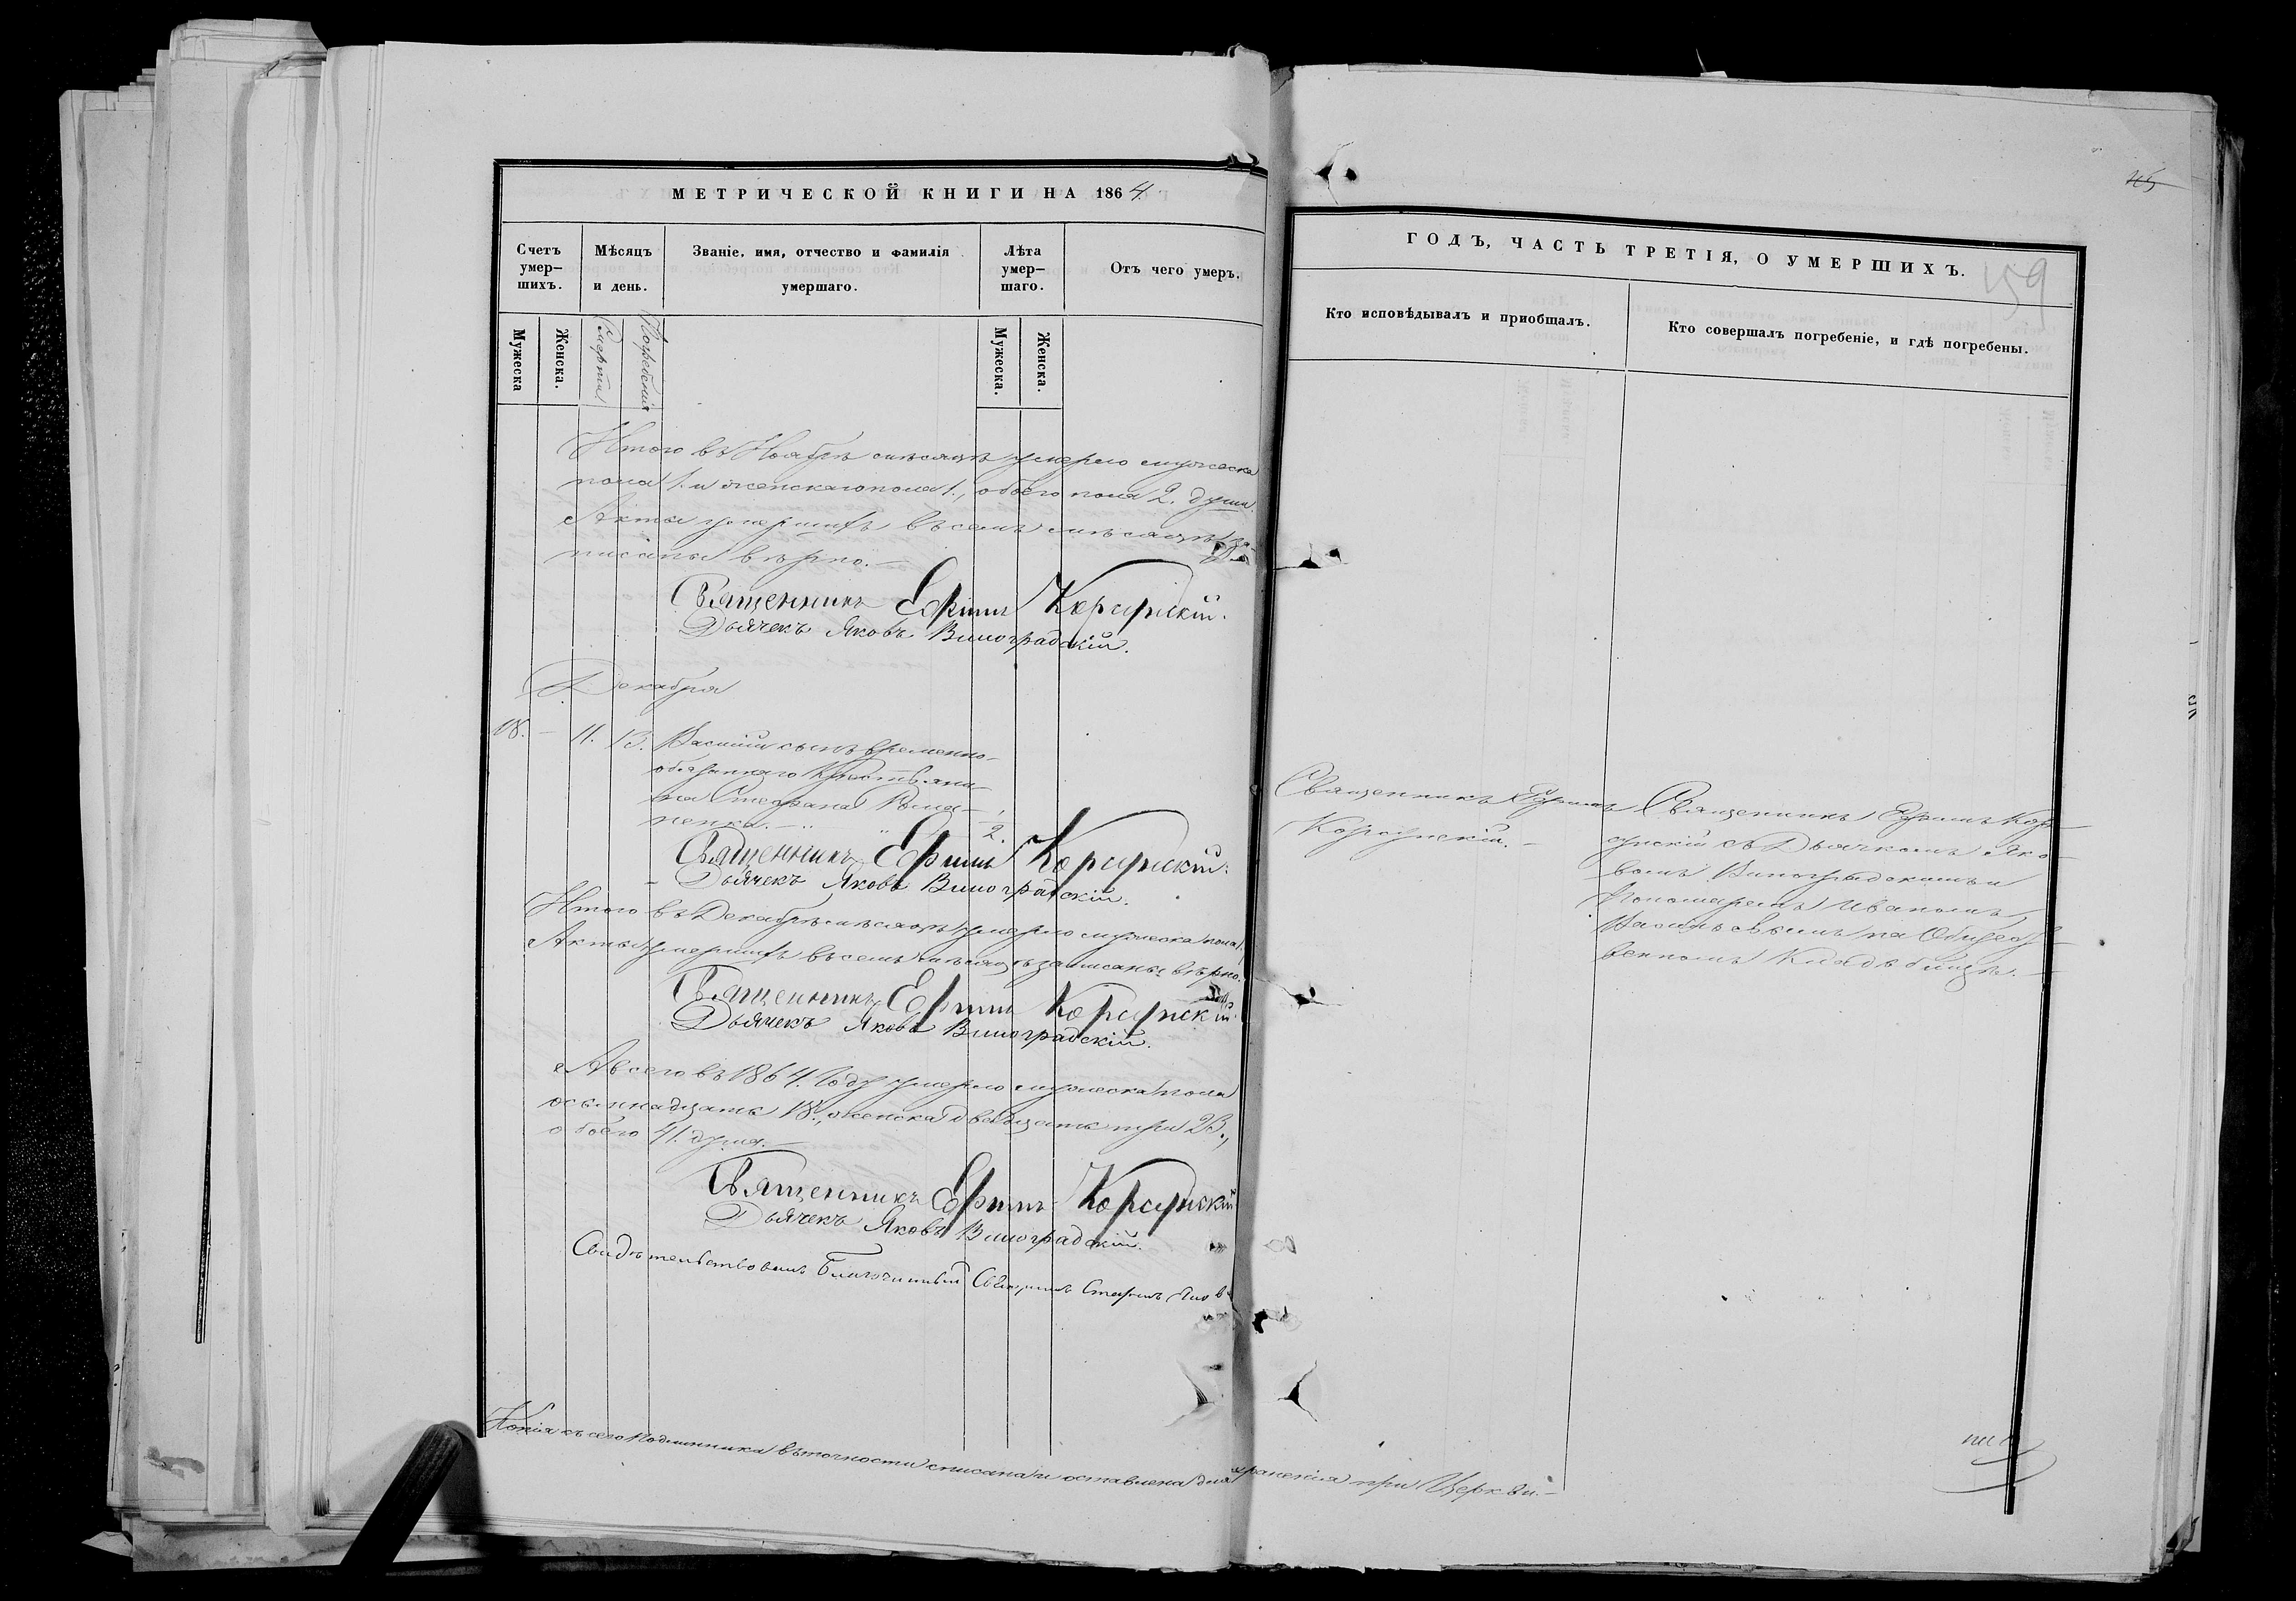 МЕТРИЧЕСКОЙ КНИГИ НА 1864.
Счетъ умер-шихъ.
Мѣсяцъ и день.
Званіе, имя, отчество и фамилія умершаго.
Лѣта умер-шаго.
Отъ чего умеръ.
Мужеска
Женска.
Смерти
Погребенія
Мужеска.
Женска.
Итого въ Ноябрѣ мѣсяцѣ умерло мужеска
пола 1. и женскаго пола 1., обоего пола 2. души.
Акты умершихъ въ семъ мѣсяцѣ за-
писаны вѣрно.
Священникъ Ефимъ Корсунскій.
Дьячекъ Яковъ Виноградскій.
Декабря
18. – 11. 13. Василій сынъ временно-
обязаннаго Крестьяни-
на Стефана
2.
Священникъ Ефимъ Корсунскій.
Дьячекъ Яковъ Виноградскій.
Итого въ Декабрѣ мѣсяцѣ умерло мужеска пола 1.
Акты умершихъ въ семъ мѣсяцѣ записаны вѣрно.
Священникъ Ефимъ Корсунскій.
Дьячекъ Яковъ Виноградскій.
А всего въ 1864. году умерло мужеска пола
осьмнадцать 18., женска двадцать три 23.,
обоего 41. душа.
Священникъ Ефимъ Корсунскій
Дьячекъ Яковъ Виноградскій.
Свидѣтельствовалъ Благочинный
Копія съ сего подлинника въ точности списана и оставлена для храненія при Церкви.
ГОДЪ, ЧАСТЬ ТРЕТІЯ, О УМЕРШИХЪ.
159
Кто исповѣдывалъ и приобщалъ.
Кто совершалъ погребеніе, и гдѣ погребены.
Священникъ Ефимъ
Корсунскій.
Священникъ Ефимъ Кор-
сунскій съ Дьячкомъ Яко-
вомъ Виноградскимъ и
Пономаремъ Иваномъ
Васильевымъ на Общест-
венномъ Кладбищѣ.